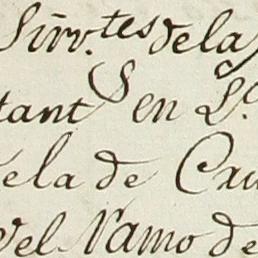 Sirv.tes de la
tant S en S.
ela de Cru
del Ramo de